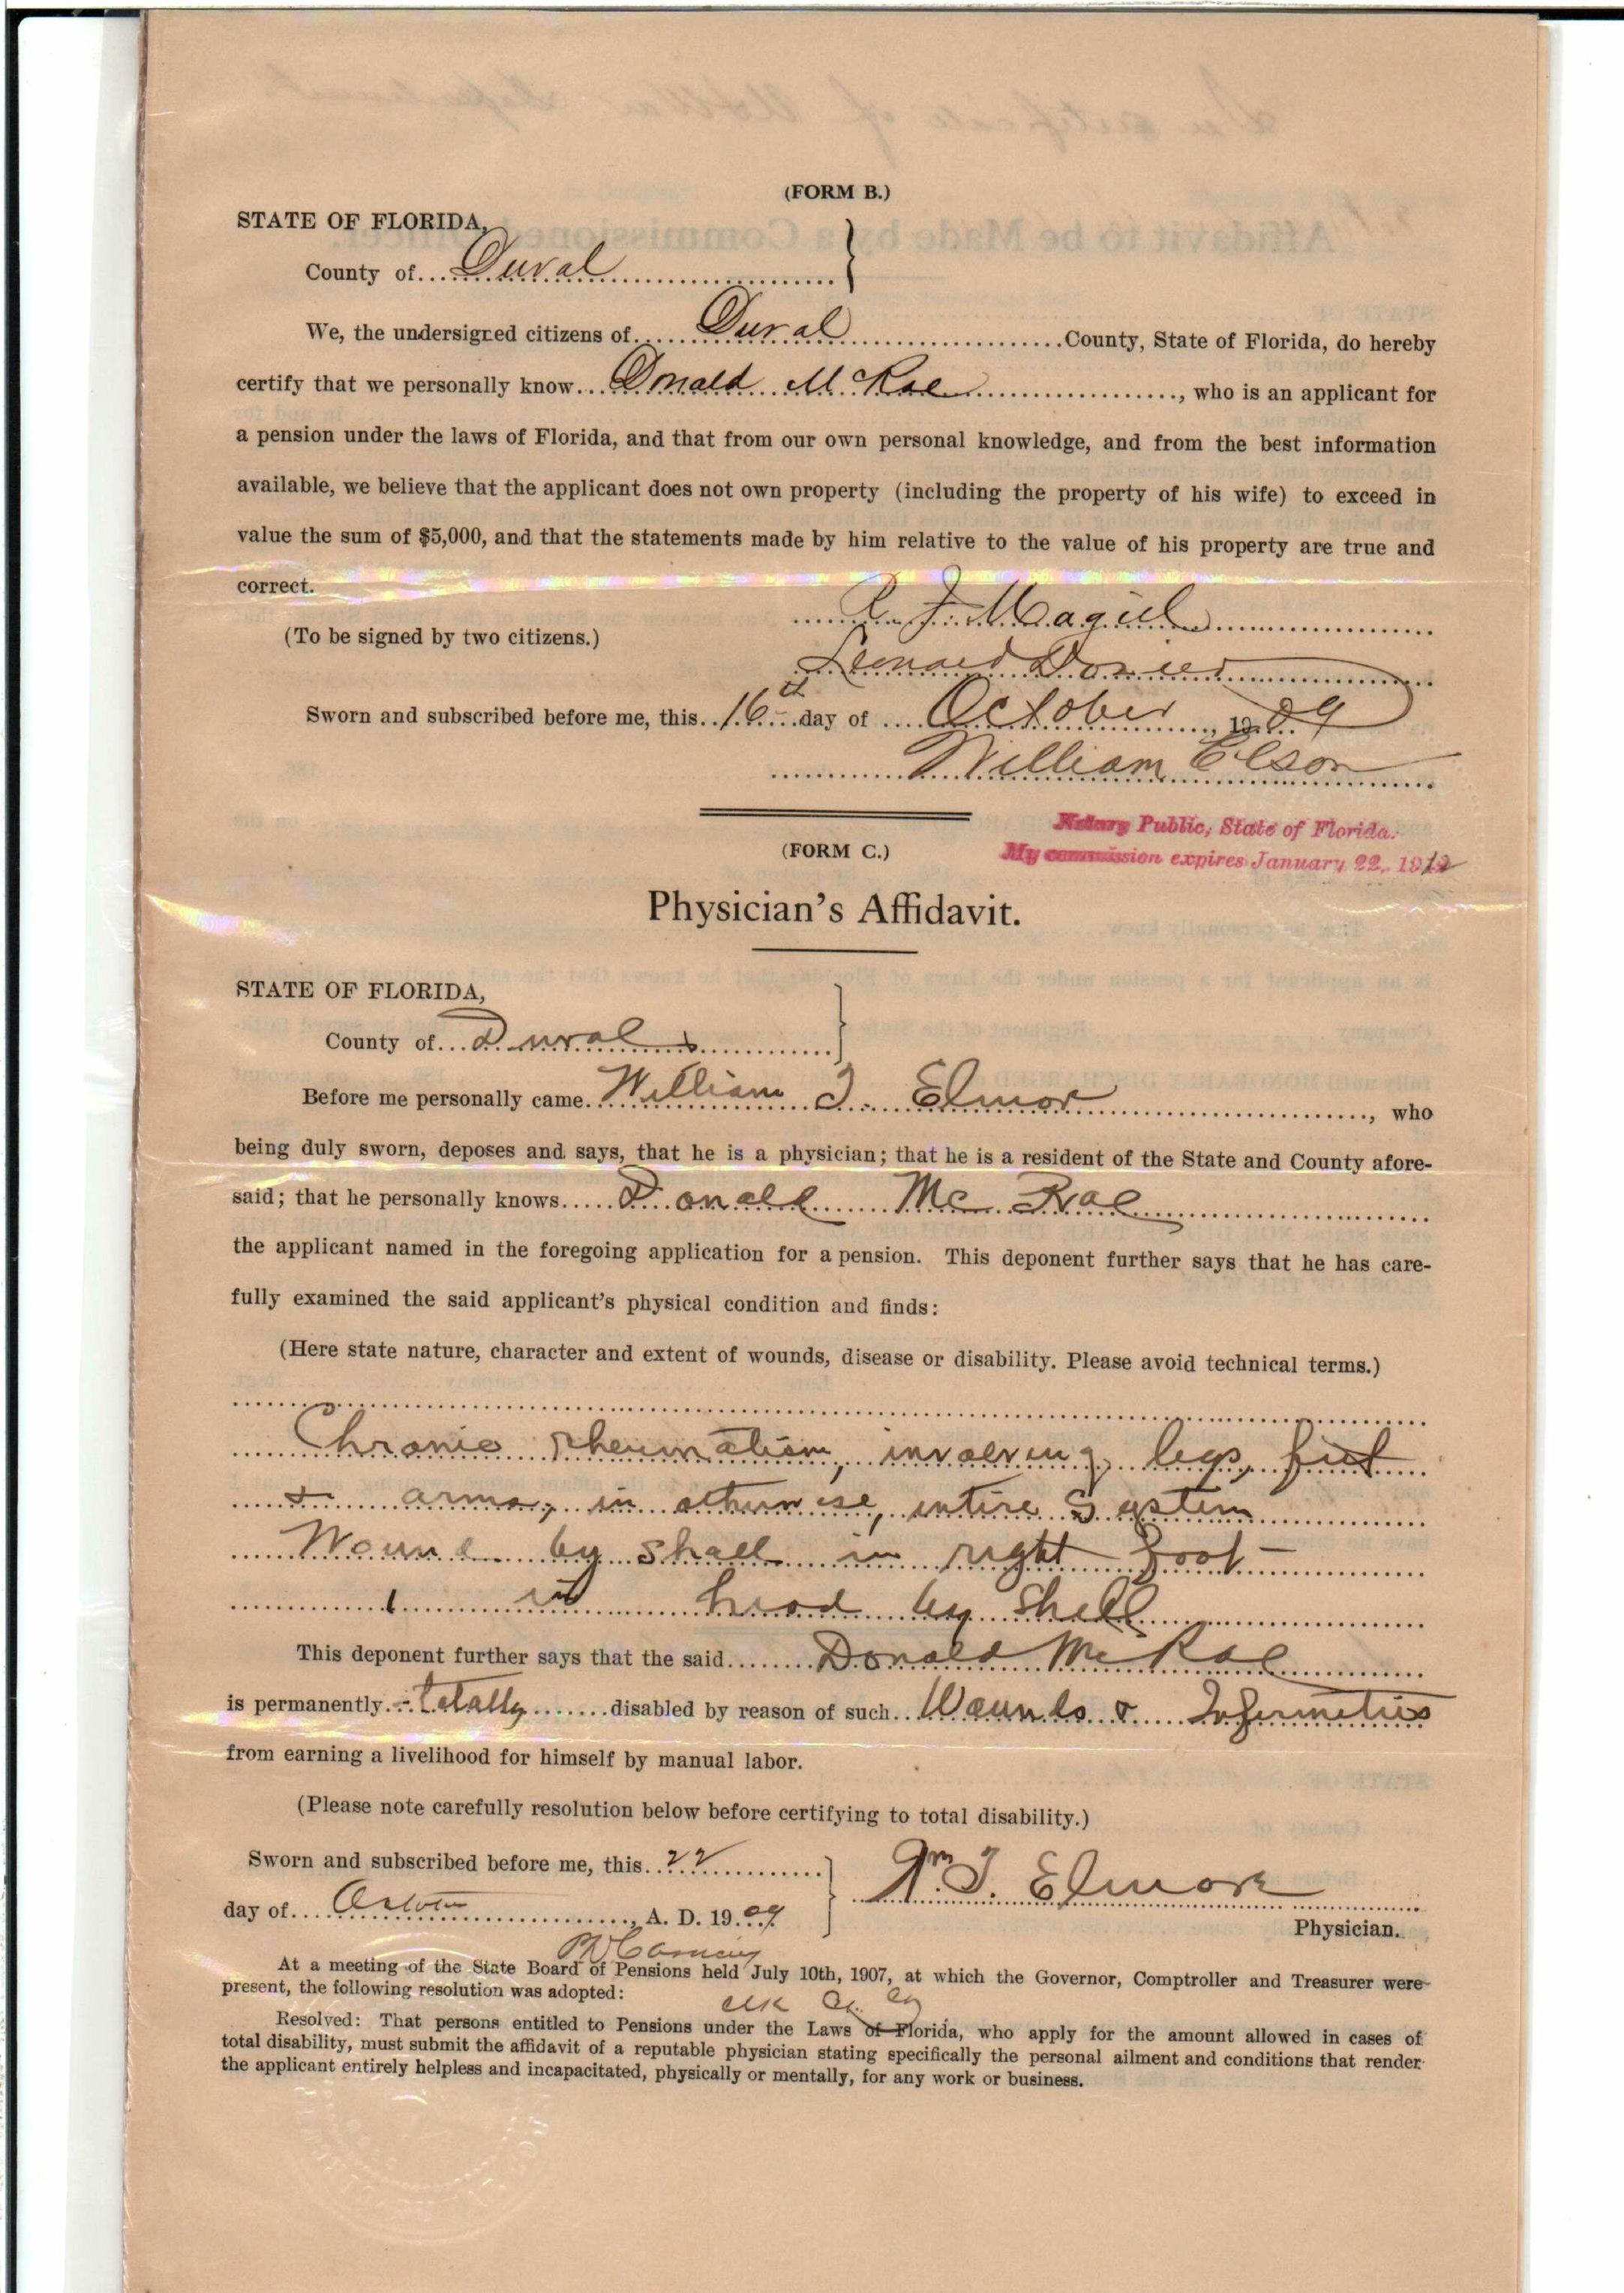 (FORM B.)
STATE OF FLORIDA,
County of Duval
We, the undersigned citizens of Duval County, State of Florida, do hereby
certify that we personally know Donald McRae, who is an applicant for
a pension under the laws of Florida, and that from our own personal knowledge, and from the best information
available, we believe that the applicant does not own property (including the property of his wife) to exceed in
value the sum of $5,000, and that the statements made by him relative to the value of his property are true and
correct.
R. J. Magill
(To be signed by two citizens.)
Leonard Dozier
Sworn and subscribed before me, this 16th day of October, 1909
William Elson
Notary Public, State of Florida.
My commission expires January 22, 1912
(FORM C.)
Physician's Affidavit.
STATE OF FLORIDA,
County of Duval
Before me personally came William J. Elmor, who
being duly sworn, deposes and says, that he is a physician; that he is a resident of the State and County afore-
said; that he personally knows Donald Mc Rae
the applicant named in the foregoing application for a pension. This deponent further says that he has care-
fully examined the said applicant's physical condition and finds:
(Here state nature, character and extent of wounds, disease or disability. Please avoid technical terms.)
Chronic rheumatism, involving legs, feet
& arms, in otherwise, entire System
Wound by shell in right foot—
1 in head by Shell
This deponent further says that the said Donald McRae
is permanently - totally disabled by reason of such Wounds & Infirmities
from earning a livelihood for himself by manual labor.
(Please note carefully resolution below before certifying to total disability.)
Sworn and subscribed before me, this 22
day of October, A. D. 1909
Wm J. Elmore
Physician.
At a meeting of the State Board of Pensions held July 10th, 1907, at which the Governor, Comptroller and Treasurer were
present, the following resolution was adopted:
Clk
Resolved: That persons entitled to Pensions under the Laws of Florida, who apply for the amount allowed in cases of
total disability, must submit the affidavit of a reputable physician stating specifically the personal ailment and conditions that render
the applicant entirely helpless and incapacitated, physically or mentally, for any work or business.